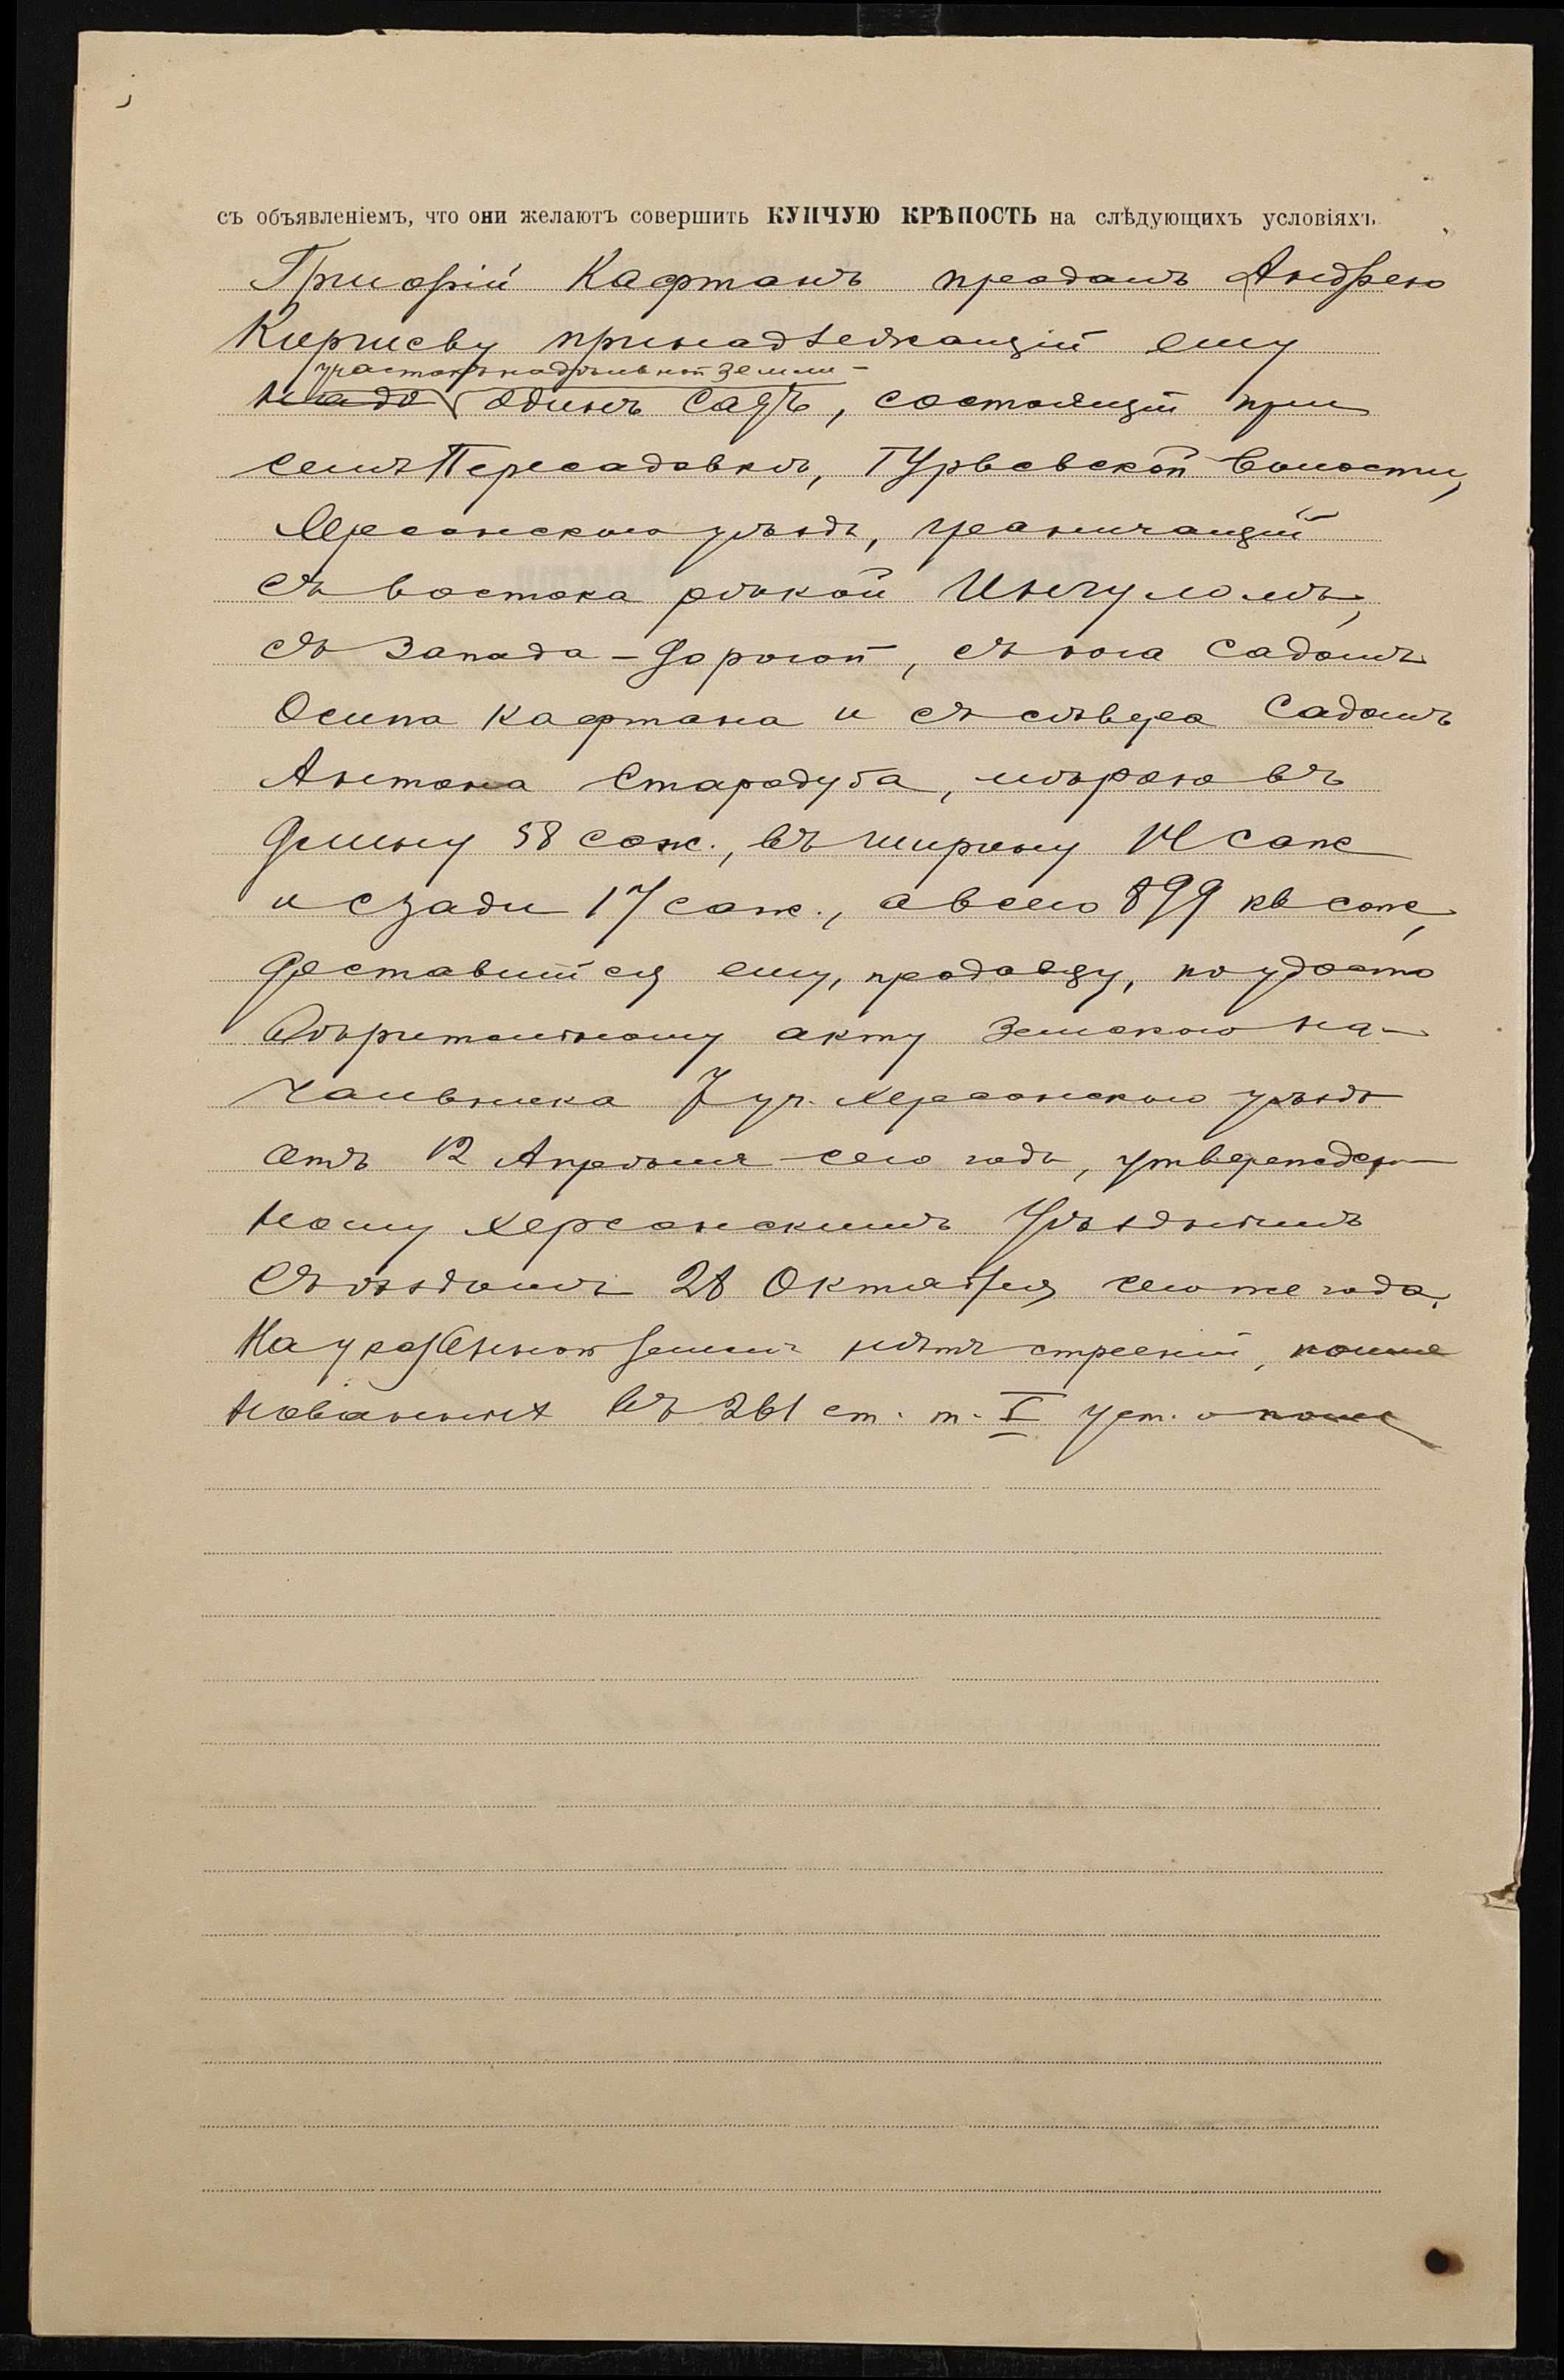 съ объявленіемъ, что они желаютъ совершить КУПЧУЮ КРѢПОСТЬ на слѣдующихъ условіяхъ
Григорій Кафтанъ продалъ Андрею
Киричеву принадлежащій ему
участокъ надѣльной земли
надѣ одинъ садъ, состоящій при
селѣ Пересадовкѣ, Гурьевской волости,
Херсонскаго уѣзда, граничащій
съ востока рѣкой Ингуломъ,
съ запада – дорогой, съ юга садомъ
Осипа Кафтана и съ сѣвера садомъ
Антона Стародуба, мѣрою въ
длину 58 саж., въ ширину 14 саж
и сзади 17 саж., а всего 899 кв саж,
доставшійся ему, продавцу, по удосто
вѣрительному акту Земскаго На-
чальника 7 уч. Херсонскаго уѣзда
отъ 12 Апрѣля сего года, утвержден
ному Херсонскимъ Уѣзднымъ
Съѣздомъ 28 Октября сего же года.
На укаｚанной землѣ нѣтъ строеній, поиме
нованныхъ въ 261 ст. т. V уст. о пош